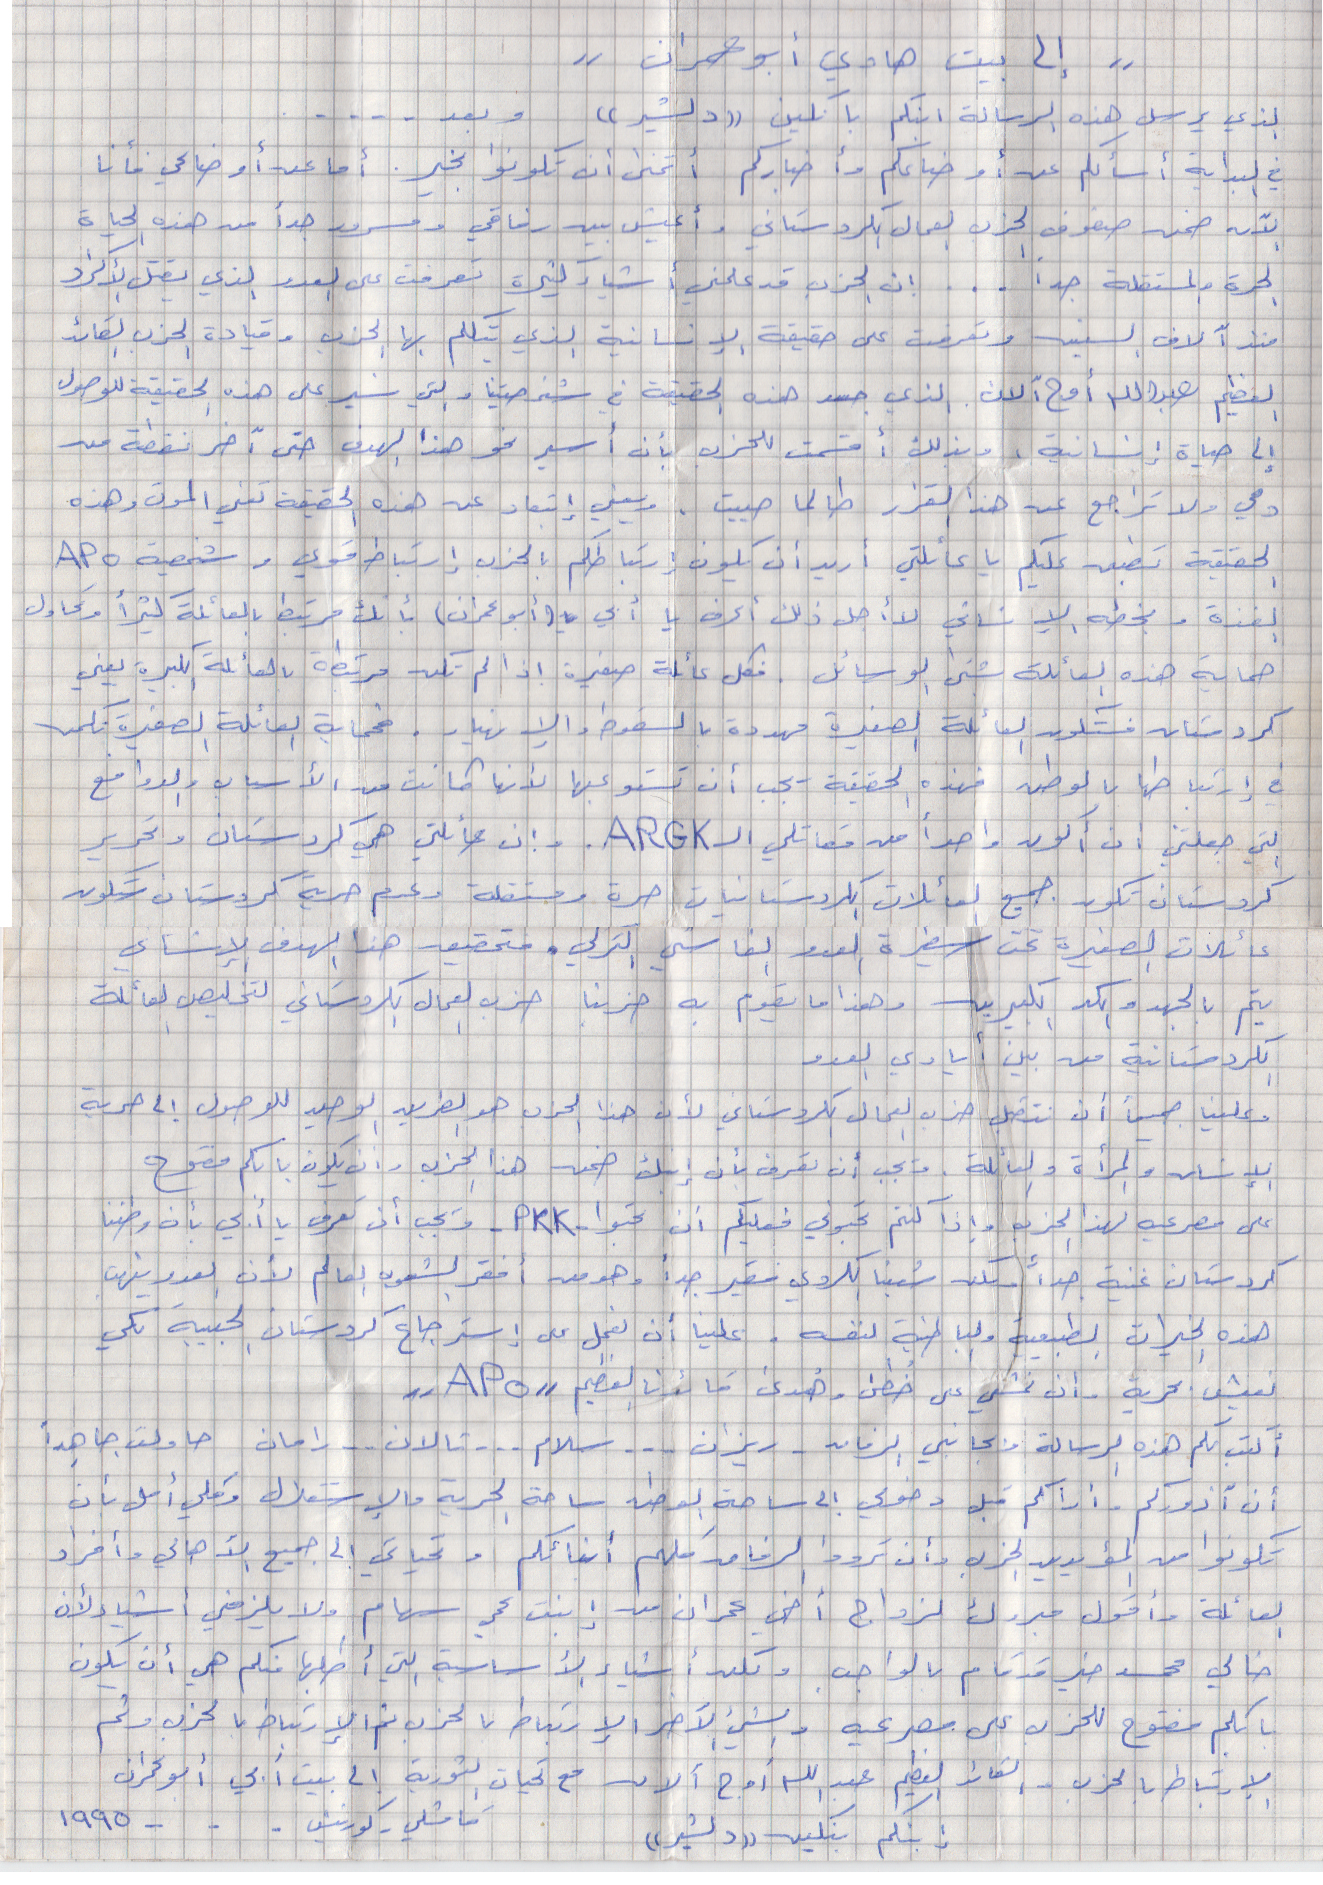 " إلى بيت هادي أبو عمران "
الذي يرسل هذه الرسالة ابنكم بانكين ((دلشير)) وبعد - - - - -
في البداية أسألكم عن أوضاعكم وأخباركم أتمنى أن تكونوا بخير. أما عن أوضاعي فأنا
الآن ضمن صفوف الحزب العمال الكردستاني وأعيش بين رفاقي ومسرور جداً من هذه الحياة
الحرة والمستقلة جداً . . . إن الحزب قد علمني أشياءً كثيرة تعرفت على العدو الذي يقتل الأكراد
منذ آلاف السنين وتعرفت على حقيقة الإنسانية الذي يتكلم بها الحزب وقيادة الحزب القائد
العظيم عبدالله أوج آلان. الذي جسد هذه الحقيقة في شخصيتنا والتي نسير على هذه الحقيقة للوصول
إلى حياة إنسانية، وبذلك أقسمت للحزب بأن أسير نحو هذا الهدف حتى آخر نقطة من
دمي ولا تراجع عن هذا القرار طالما حييت. ويعني إبتعاد عن هذه الحقيقة تعني الموت وهذه
الحقيقة تنطبق عليكم يا عائلتي أريد أن يكون إرتباطكم بالحزب إرتباط قوي و شخصية APO
الفذة و بخطه الإنساني لأجل ذلك أعرف يا أبي يا (أبو عمران) بأنك مرتبط بالعائلة كثيراً وتحاول
حماية هذه العائلة بشتى الوسائل. فكل عائلة صغيرة إذا لم تكن مرتبطة بالعائلة الكبيرة يعني
كردستان فستكون العائلة الصغيرة مهددة بالسقوط والإنهيار. فحماية العائلة الصغيرة تكمن
في إرتباطها بالوطن فهذه الحقيقة يجب أن تستوعبها لأنها كانت من الأسباب والدوافع
التي جعلتني أن أكون واحداً من مقاتلي الـ ARGK. وإن عائلتي هي كردستان وتحرير
كردستان تكون جميع العائلات الكردستانيات حرة ومستقلة وعدم حرية كردستان ستكون
عائلات الصغيرة تحت سيطرة العدو الفاشي التركي. فتحقيق هذا الهدف الإنساني
يتم بالجهد والكد الكبيرين وهذا ما يقوم به حزبنا حزب العمال الكردستاني لتخليص العائلة
الكردستانية من بين أيادي العدو
وعلينا جميعاً أن نتقبل حزب العمال الكردستاني لأن هذا الحزب هو الطريق الوحيد للوصول إلى حرية
الإنسان والمرأة والعائلة. ويجب أن تعرف بأن إبنك ضمن هذا الحزب وأن يكون بابكم مفتوح
على مصرعيه لهذا الحزب وإذا كنتم تحبوني فعليكم أن تحبوا - PKK - ويجب أن تعرف يا أبي بأن وطننا
كردستان غنية جداً ولكن شعبنا الكردي فقير جداً وهو من أفقر الشعوب العالم لأن العدو ينهب
هذه الخيرات الطبيعية والباطنية لنفسه. علينا أن نعمل على إسترجاع كردستان الحبيبة لكي
نعيش بحرية وأن نمشي على خُطى وهُدى قائدنا العظيم " APO "
أكتب لكم هذه الرسالة وبجانبي الرفاق - ريزان --- سلام --- تالان -- رامان حاولت جاهداً
أن أزوركم وأراكم قبل دخولي إلى ساحة الوطن ساحة الحرية والإستقلال وكلي أمل بأن
تكونوا من المؤيدين للحزب وأن تروا الرفاق كلهم أبنائكم و تحياتي إلى جميع الأهالي وأفراد
العائلة وأقول مبروك لزواج أخي عمران من إبنت عمي سهام ولا يلزمني أشياء لأن
خالي محمد خير قد قام بالواجب ولكن أشياء الأساسية التي أطلبها منكم هي أن يكون
بابكم مفتوح للحزب على مصرعيه والشيء الآخر الإرتباط بالحزب ثم الإرتباط بالحزب وثم
الإرتباط بالحزب والقائد العظيم عبدالله أوج آلان مع تحيات الثورية إلى بيت أبي أبو عمران
إبنكم بنكين ((دلشير)) قامشلي - كورنيش - - - ١٩٩٥